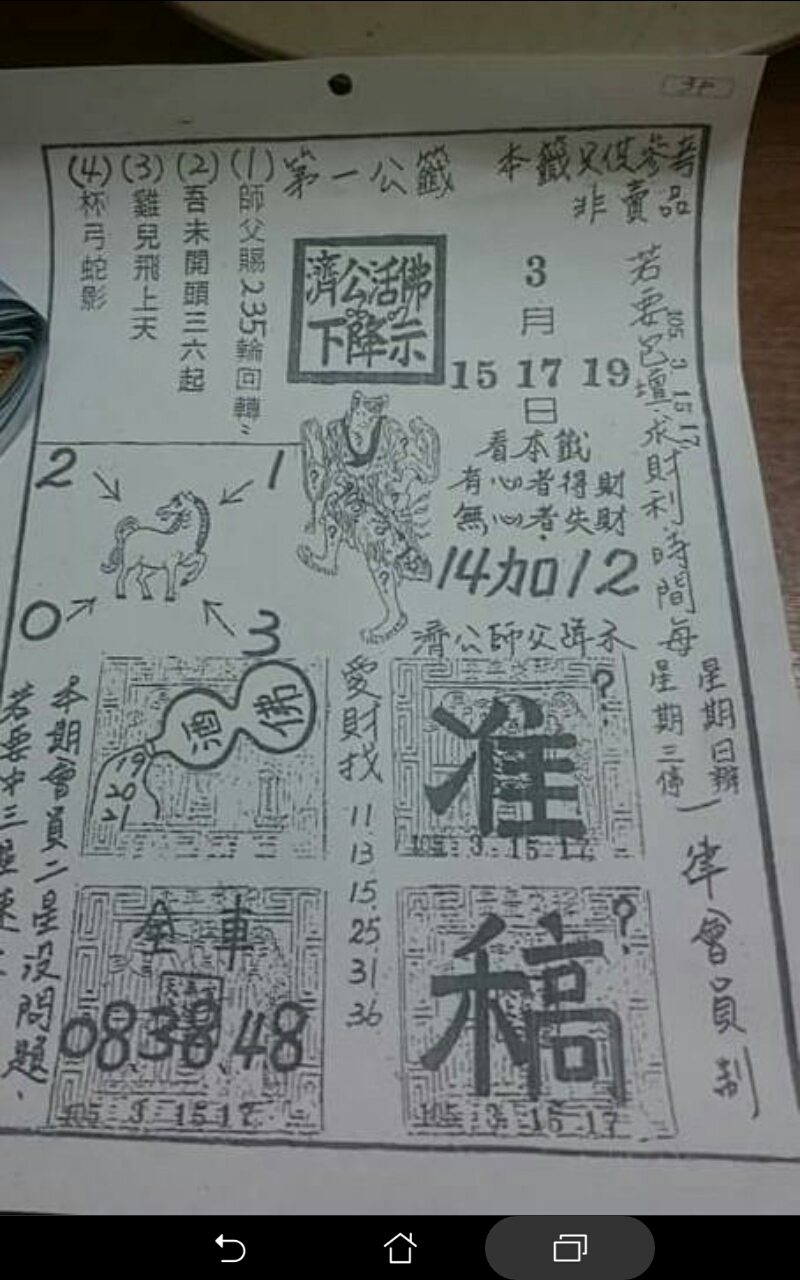 本籤只供參考
非賣品
第一公籤
(1)師父賜235輪回轉
(2)吾未開頭三六起
(3)雞兒飛上天
(4)杯弓蛇影
濟公活佛
下降示
3
月
15 17 19
日
看本籤
有心者得財
無心者失財
14加12
濟公師父
105 3 15 17
若要
壇求財利時間每
星期日辦
星期三停
一律會員制
2
1
0
3
酒
佛
19
20
21
愛財找
11
13
15
25
31
36
准
?
105 3 15 17
全車
08 38 48
105 3 15 17
稿
?
105 3 15 17
本期會員二星沒問題
若要中三